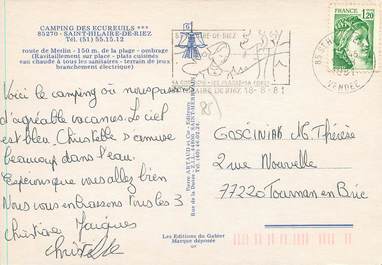 CAMPING DES ECUREUILS ***
85270 - SAINT-HILAIRE-DE-RIEZ
Tél. (51) 55.15.12
route de Merlin - 150 m. de la plage - ombrage
(Ravitaillement sur place - plats cuisinés
eau chaude à tous les sanitaires - terrain de jeux
branchement électrique)
Voici le camping où nous passons
d'agréable vacances. Le ciel
est bleu. Christelle s'amuse
beaucoup dans l'eau.
Espérons que vous allez bien
Nous vous embrassons Tous les 3
Christiane Jacques
Christelle
DE-RIEZ
HILAIRE DE RIEZ 18-8-81
FRANCE
1,20
VENDEE
85
GOSCINIAK M. Thérèse
2 rue Nouvelle
77220 Tournan en Brie
Les Editions du Galéer
Marque déposée